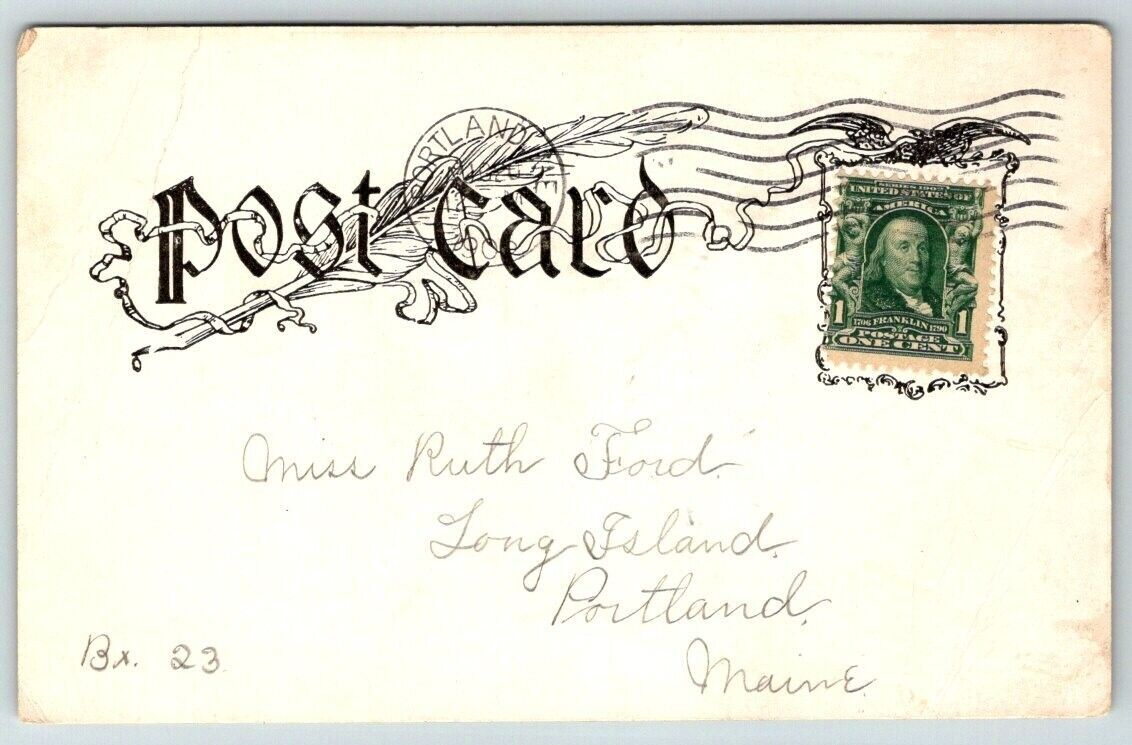 Post Card
PORTLAND
SERIES 1902
UNITED STATES OF
AMERICA
1 1706 FRANKLIN 1790 1
POSTAGE
ONE CENT
Miss Ruth Ford
Long Island
Portland
Maine
Bx. 23